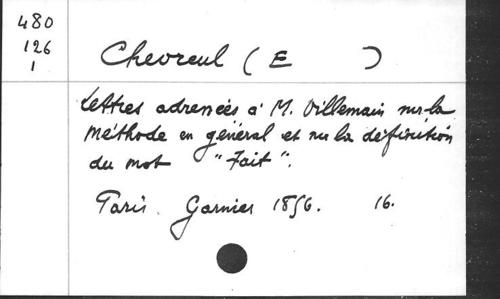 480
126
1
Chevreul ( E )
Lettres adressées à M. Villemain sur la
Méthode en général et sur la définition
du mot "Fait".
Paris. Garnier 1856. 16.